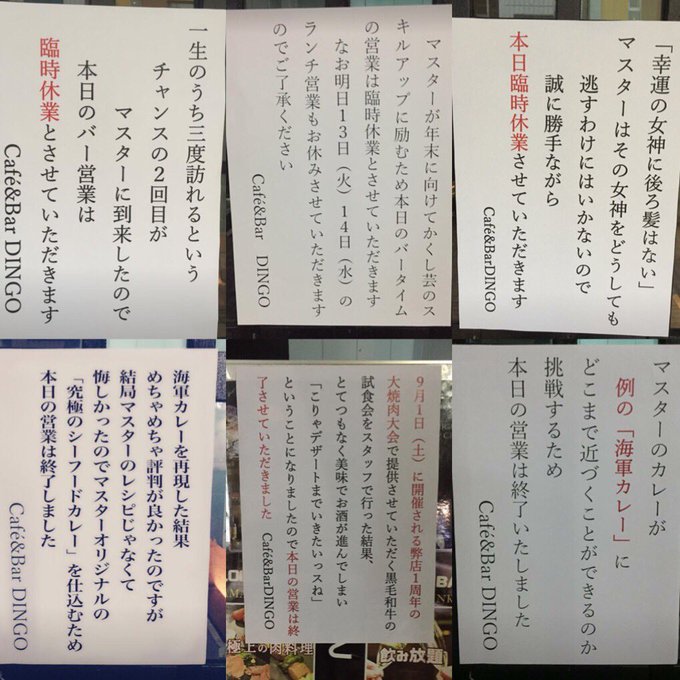 一生のうち三度訪れるという
チャンスの2回目が
マスターに到来したので
本日のバー営業は
臨時休業とさせていただきます
Café&Bar DINGO
マスターが年末に向けてかくし芸のス
キルアップに励むため本日のバータイム
の営業は臨時休業とさせていただきます
なお明日13日（火）14日（水）の
ランチ営業もお休みさせていただきます
のでご了承ください
Café&Bar DINGO
「幸運の女神に後ろ髪はない」
マスターはその女神をどうしても
逃すわけにはいかないので
誠に勝手ながら
本日臨時休業させていただきます
Café&BarDINGO
海軍カレーを再現した結果
めちゃめちゃ評判が良かったのですが
結局マスターのレシピじゃなくて
悔しかったのでマスターオリジナルの
「究極のシーフードカレー」を仕込むため
本日の営業は終了しました
Café&Bar DINGO
9月1日（土）に開催される弊店1周年の
大焼肉大会で提供させていただく黒毛和牛の
試食会をスタッフで行った結果、
とてつもなく美味でお酒が進んでしまい
「こりゃデザートまでいきたいっスね」
ということになりましたので本日の営業は終
了させていただきました
Café&BarDINGO
極上の肉料理
と
飲み放題
マスターのカレーが
例の「海軍カレー」に
どこまで近づくことができるのか
挑戦するため
本日の営業は終了いたしました
Café&Bar DINGO